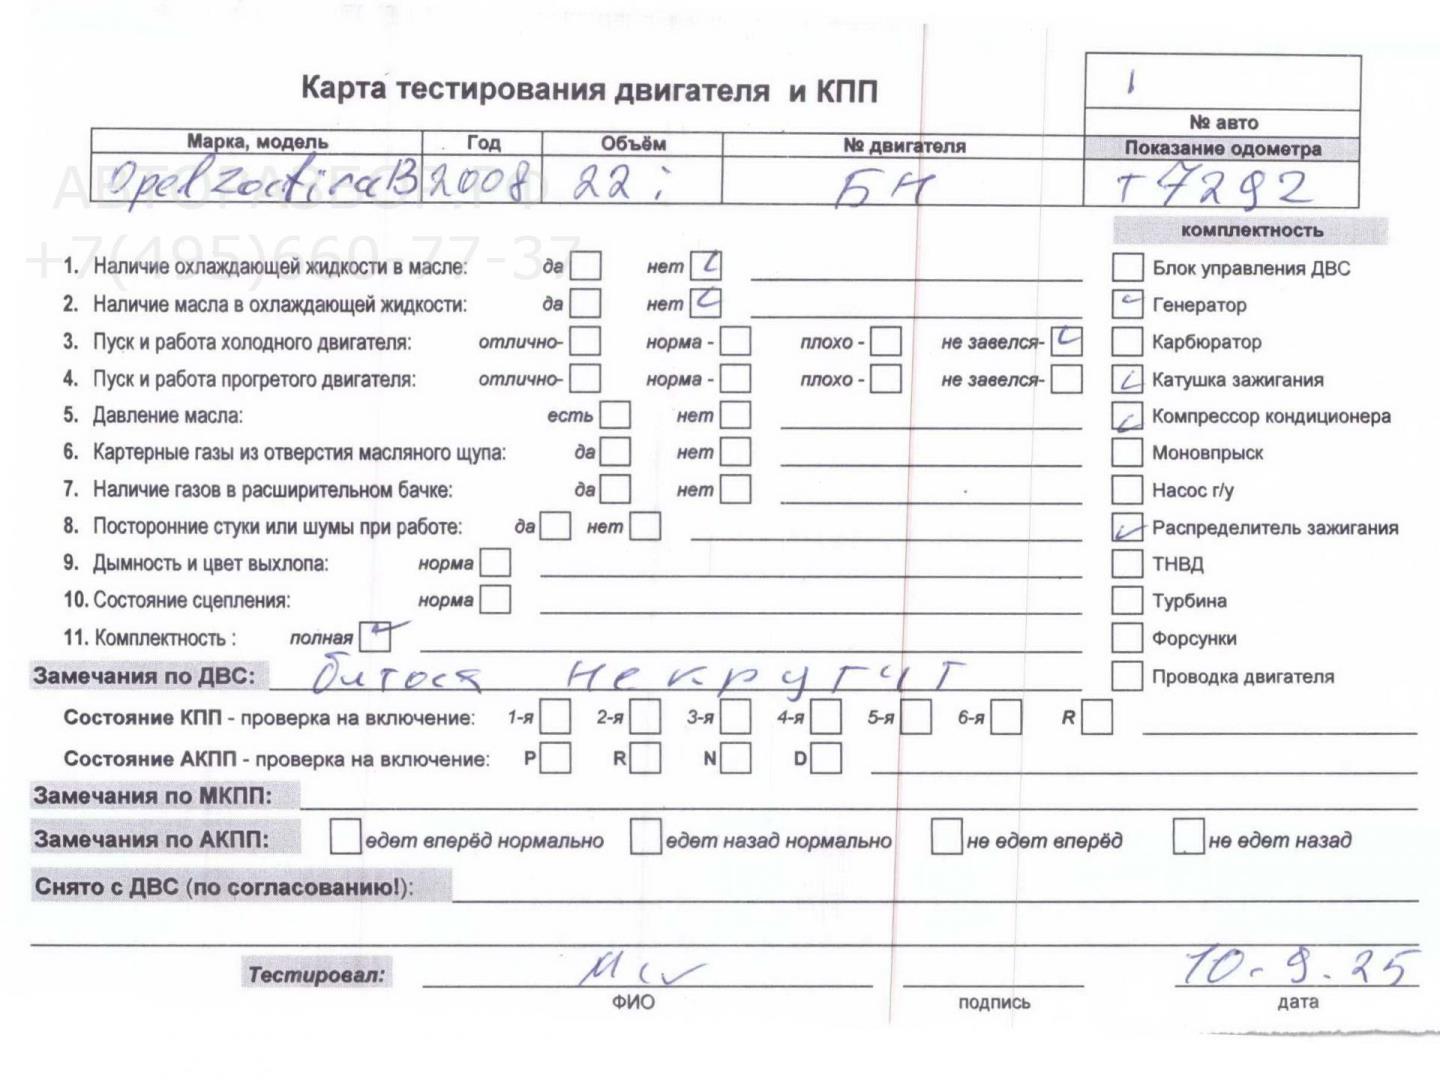 Карта тестирования двигателя и КПП
1
№ авто
Марка, модель Год Объём № двигателя Показание одометра
Opel Zafira B 2008 22i БН т7292
АВТОРАЗБОР.РФ
+7(495)660-77-37
комплектность
1. Наличие охлаждающей жидкости в масле: да нет Блок управления ДВС
2. Наличие масла в охлаждающей жидкости: да нет Генератор
3. Пуск и работа холодного двигателя: отлично- норма - плохо - не завелся- Карбюратор
4. Пуск и работа прогретого двигателя: отлично- норма - плохо - не завелся- Катушка зажигания
5. Давление масла: есть нет Компрессор кондиционера
6. Картерные газы из отверстия масляного щупа: да нет Моновпрыск
7. Наличие газов в расширительном бачке: да нет Насос г/у
8. Посторонние стуки или шумы при работе: да нет Распределитель зажигания
9. Дымность и цвет выхлопа: норма ТНВД
10. Состояние сцепления: норма Турбина
11. Комплектность : полная Форсунки
Замечания по ДВС: не крутит Проводка двигателя
Состояние КПП - проверка на включение: 1-я 2-я 3-я 4-я 5-я 6-я R
Состояние АКПП - проверка на включение: P R N D
Замечания по МКПП:
Замечания по АКПП: едет вперёд нормально едет назад нормально не едет вперёд не едет назад
Снято с ДВС (по согласованию!):
Тестировал: 10.9.25
ФИО подпись дата